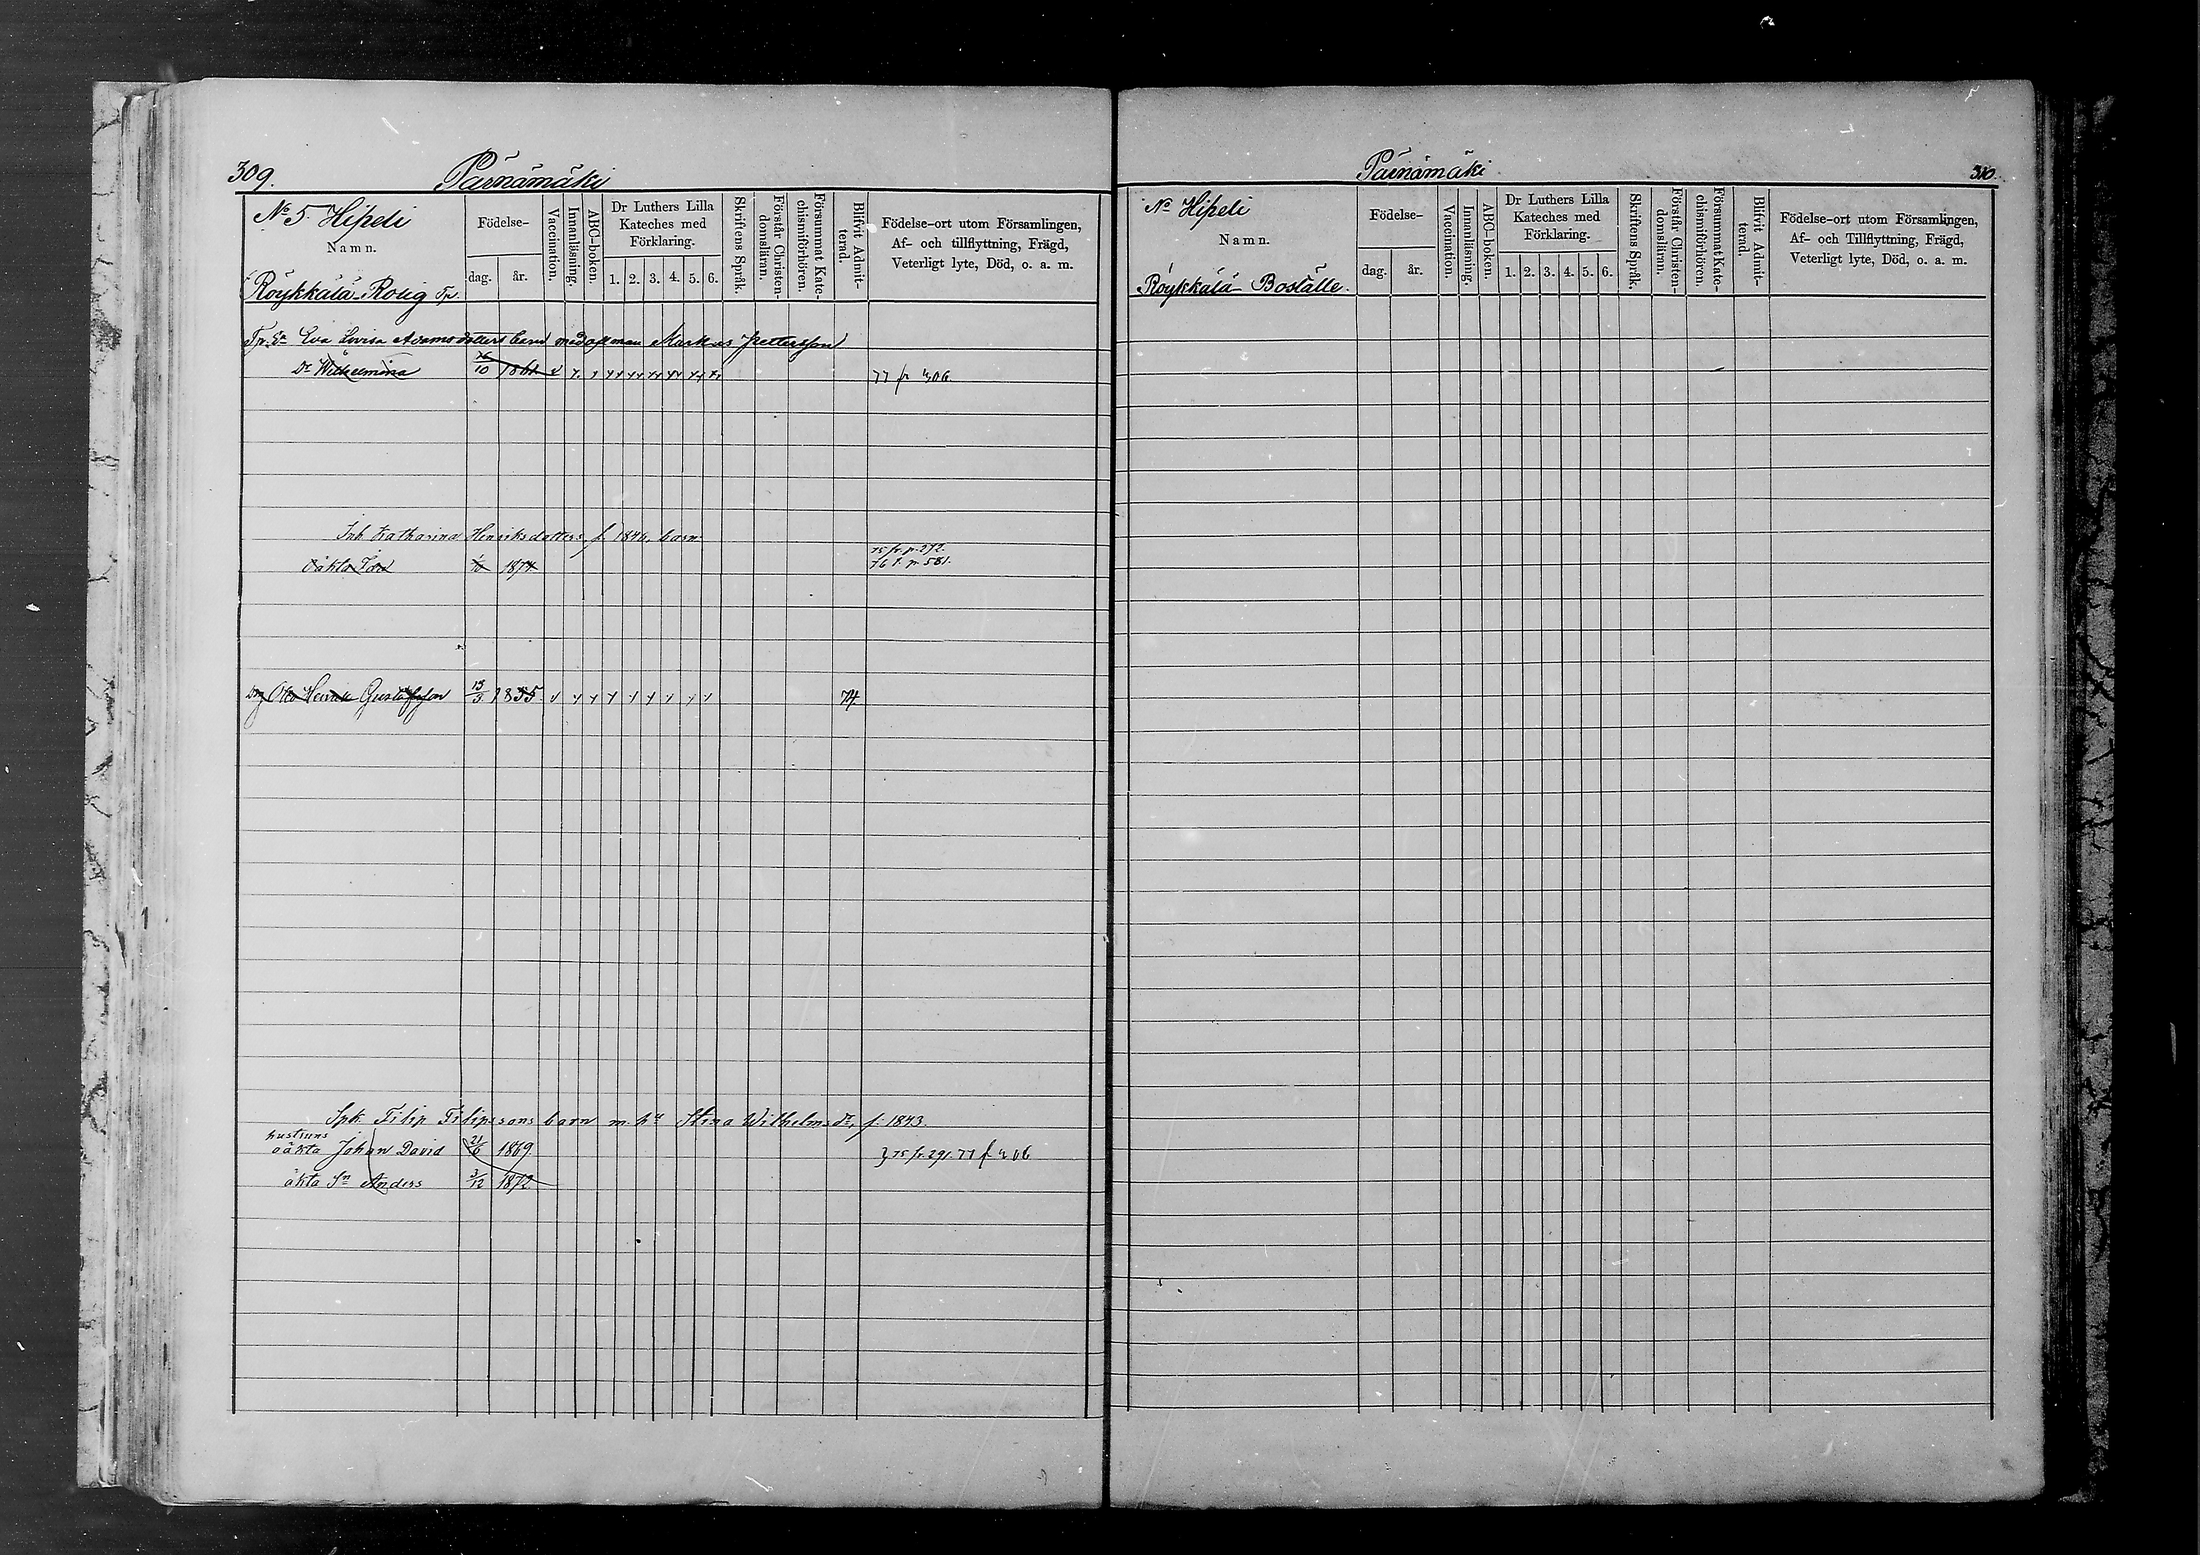 309.
Pärnämäki
No 5. Hipeli
Namn.
Röykkälä Rotig Tp.
Födelse-
dag. år.
Vaccination.
Innanläsning.
ABC-boken.
Dr Luthers Lilla
Kateches med
Förklaring.
1. 2. 3. 4. 5. 6.
Skriftens Språk.
Förstår Christen-
domsläran.
Försummat Kate-
chismiförhören.
Blifvit Admit-
terad.
Födelse-ort utom Församlingen,
Af- och tillflyttning, Frägd,
Veterligt lyte, Död, o. a. m.
Eva Lovisa Adamsdotters barn med afman Markus Pettersson
Dr Wilhelmina 10 186 77 fr 306.
Inh Katharina Henriksdotters f 1846, barn
75 fr. p. 272.
oäkta Son 1/10 1874 76 t. p 581.
Otto Henrik Gustafsson 15/3. 1855 74.
Spk Filip Filipssons barn m. hu Stina Wilhelms dr, f. 1843.
hustruns
oäkta Johan David 21/6 1869 75 fr. 291. 77 f 306
äkta Sn Anders 3/12 1872
Pärnämäki
310.
No Hipeli
Namn.
Röykkälä Boställe.
Födelse-
dag. år.
Vaccination.
Innanläsning.
ABC-boken.
Dr Luthers Lilla
Kateches med
Förklaring.
1. 2. 3. 4. 5. 6.
Skriftens Språk.
Förstår Christen-
domsläran.
Försummat Kate-
chismiförhören.
Blifvit Admit-
terad.
Födelse-ort utom Församlingen,
Af- och Tillflyttning, Frägd,
Veterligt lyte, Död, o. a. m.